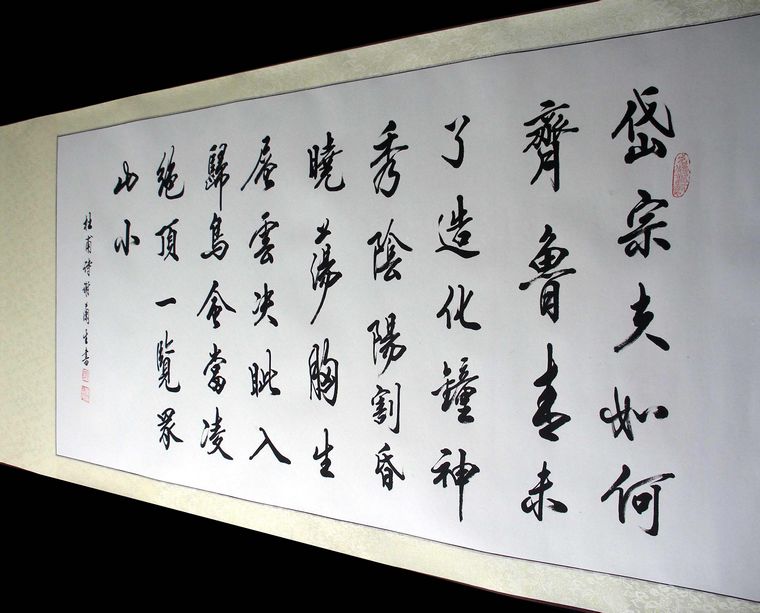 岱宗夫如何
齊魯青未
了造化鐘神
秀陰陽割昏
曉蕩胸生
层雲决眦入
歸鳥会當凌
絶頂一覽眾
山小
杜甫诗生書